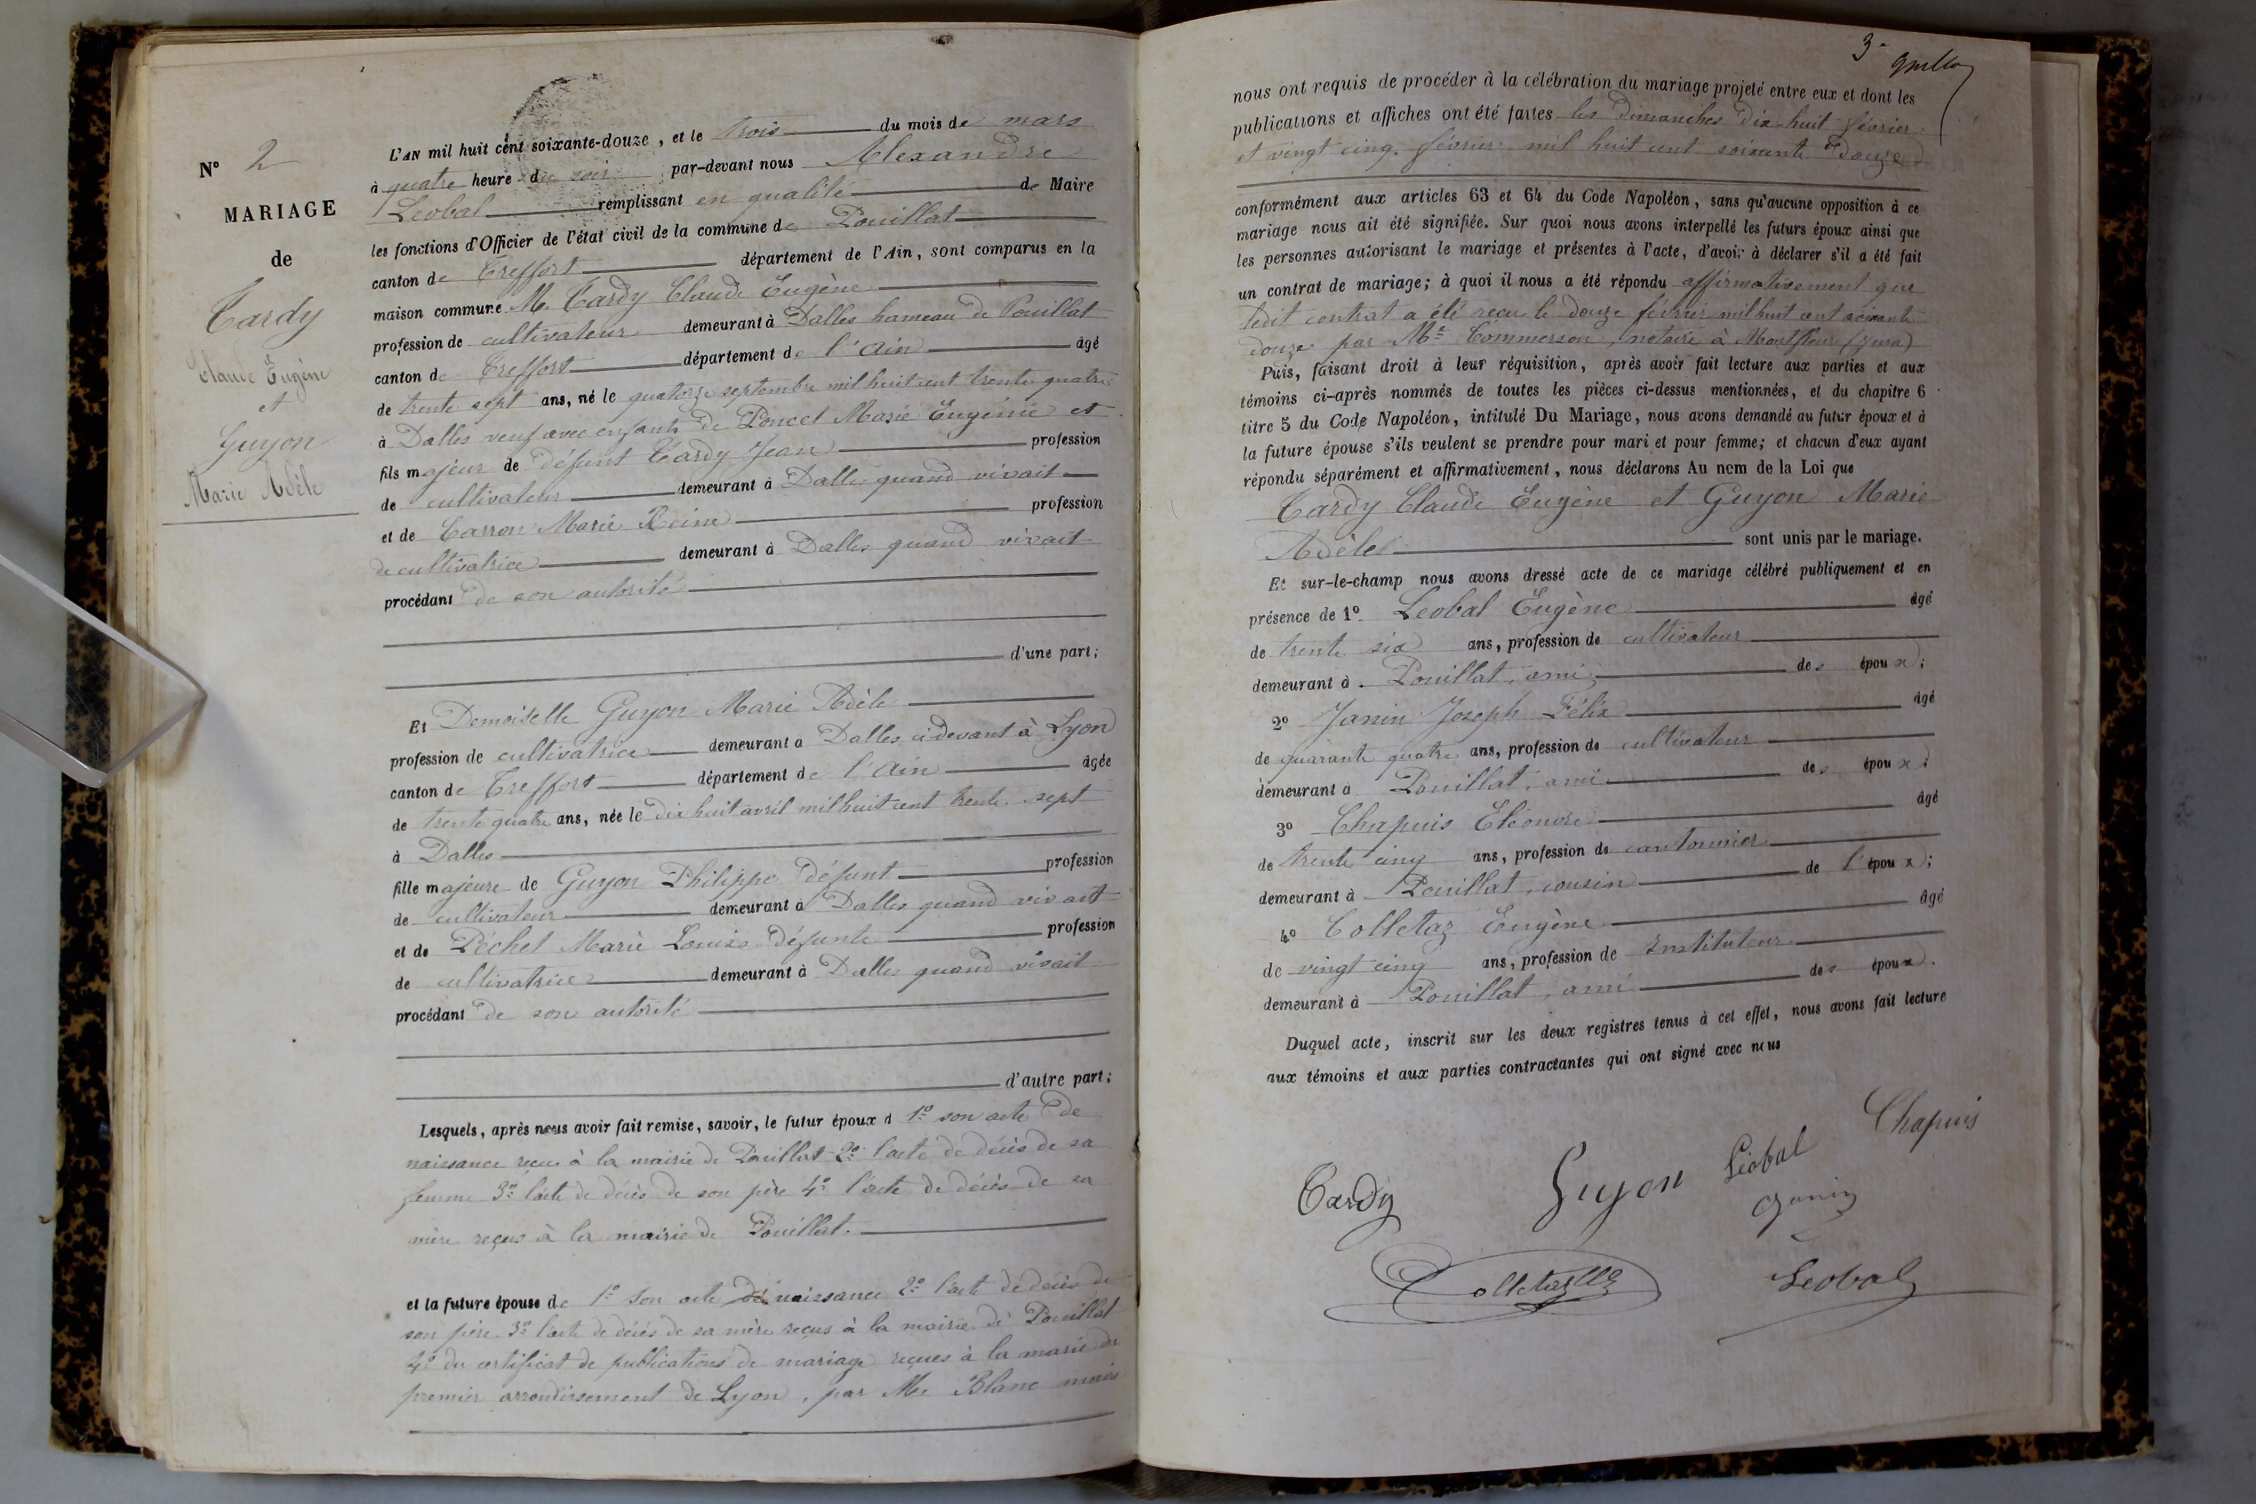 N° 2
MARIAGE
de
Tardy
Claude Eugène
et
Guyon
Marie Adèle
L'AN mil huit cent soixante-douze, et le trois du mois de mars
à quatre heure du soir par-devant nous Alexandre
Léobal remplissant en qualité de Maire
les fonctions d'Officier de l'état civil de la commune de Pouillat
canton de Treffort département de l'Ain, sont comparus en la
maison commune M. Tardy Claude Eugène
profession de cultivateur demeurant à Dalles hameau de Pouillat
canton de Treffort département de l'Ain âgé
de trente sept ans, né le quatorze septembre mil huit cent trente quatre
à Dalles veuf avec enfants de Poncet Marie Eugénie et
fils majeur de défunt Tardy Jean profession
de cultivateur demeurant à Dalles quand vivait
et de Carron Marie Reine profession
de cultivatrice demeurant à Dalles quand vivait
procédant de son autorité
d'une part;
Et Demoiselle Guyon Marie Adèle
profession de cultivatrice demeurant à Dalles ci devant à Lyon
canton de Treffort département de l'Ain âgée
de trente quatre ans, née le dix huit avril mil huit cent trente sept
à Dalles
fille majeure de Guyon Philippe défunt profession
de cultivateur demeurant à Dalles quand vivait
et de Péchet Marie Louise défunte profession
de cultivatrice demeurant à Dalles quand vivait
procédant de son autorité
d'autre part;
Lesquels, après nous avoir fait remise, savoir, le futur époux d 1° son acte de
naissance reçu à la mairie de Pouillat 2° l'acte de décès de sa
femme 3° l'acte de décès de son père 4° l'acte de décès de sa
mère reçus à la mairie de Pouillat.
et la future épouse de 1° son acte de naissance 2° l'acte de décès de
son père 3° l'acte de décès de sa mère reçus à la mairie de Pouillat
4° du certificat de publications de mariage reçues à la mairie du
premier arrondissement de Lyon, par Mr Blanc maire
3
nous ont requis de procéder à la célébration du mariage projeté entre eux et dont les
publications et affiches ont été faites les dimanches dix huit février
et vingt cinq février mil huit cent soixante douze
conformément aux articles 63 et 64 du Code Napoléon, sans qu'aucune opposition à ce
mariage nous ait été signifiée. Sur quoi nous avons interpellé les futurs époux ainsi que
les personnes autorisant le mariage et présentes à l'acte, d'avoir à déclarer s'il a été fait
un contrat de mariage; à quoi il nous a été répondu affirmativement que
ledit contrat a été reçu le douze février mil huit cent soixante
douze par Me Commerson, notaire à Montfleur (Jura)
Puis, faisant droit à leur réquisition, après avoir fait lecture aux parties et aux
témoins ci-après nommés de toutes les pièces ci-dessus mentionnées, et du chapitre 6
titre 5 du Code Napoléon, intitulé Du Mariage, nous avons demandé au futur époux et à
la future épouse s'ils veulent se prendre pour mari et pour femme; et chacun d'eux ayant
répondu séparément et affirmativement, nous déclarons Au nom de la Loi que
Tardy Claude Eugène et Guyon Marie
Adèle sont unis par le mariage.
Et sur-le-champ nous avons dressé acte de ce mariage célébré publiquement et en
présence de 1° Léobal Eugène âgé
de trente six ans, profession de cultivateur
demeurant à Pouillat, ami des époux;
2° Janin Joseph Félix âgé
de quarante quatre ans, profession de cultivateur
demeurant à Pouillat, ami des époux;
3° Chapuis Eléonore âgé
de trente cinq ans, profession de cantonnier
demeurant à Pouillat, cousin de l'époux;
4° Colletaz Eugène âgé
de vingt cinq ans, profession de Instituteur
demeurant à Pouillat, ami des époux.
Duquel acte, inscrit sur les deux registres tenus à cet effet, nous avons fait lecture
aux témoins et aux parties contractantes qui ont signé avec nous
Chapuis
Tardy Guyon Léobal
Janin
Colletaz Léobal